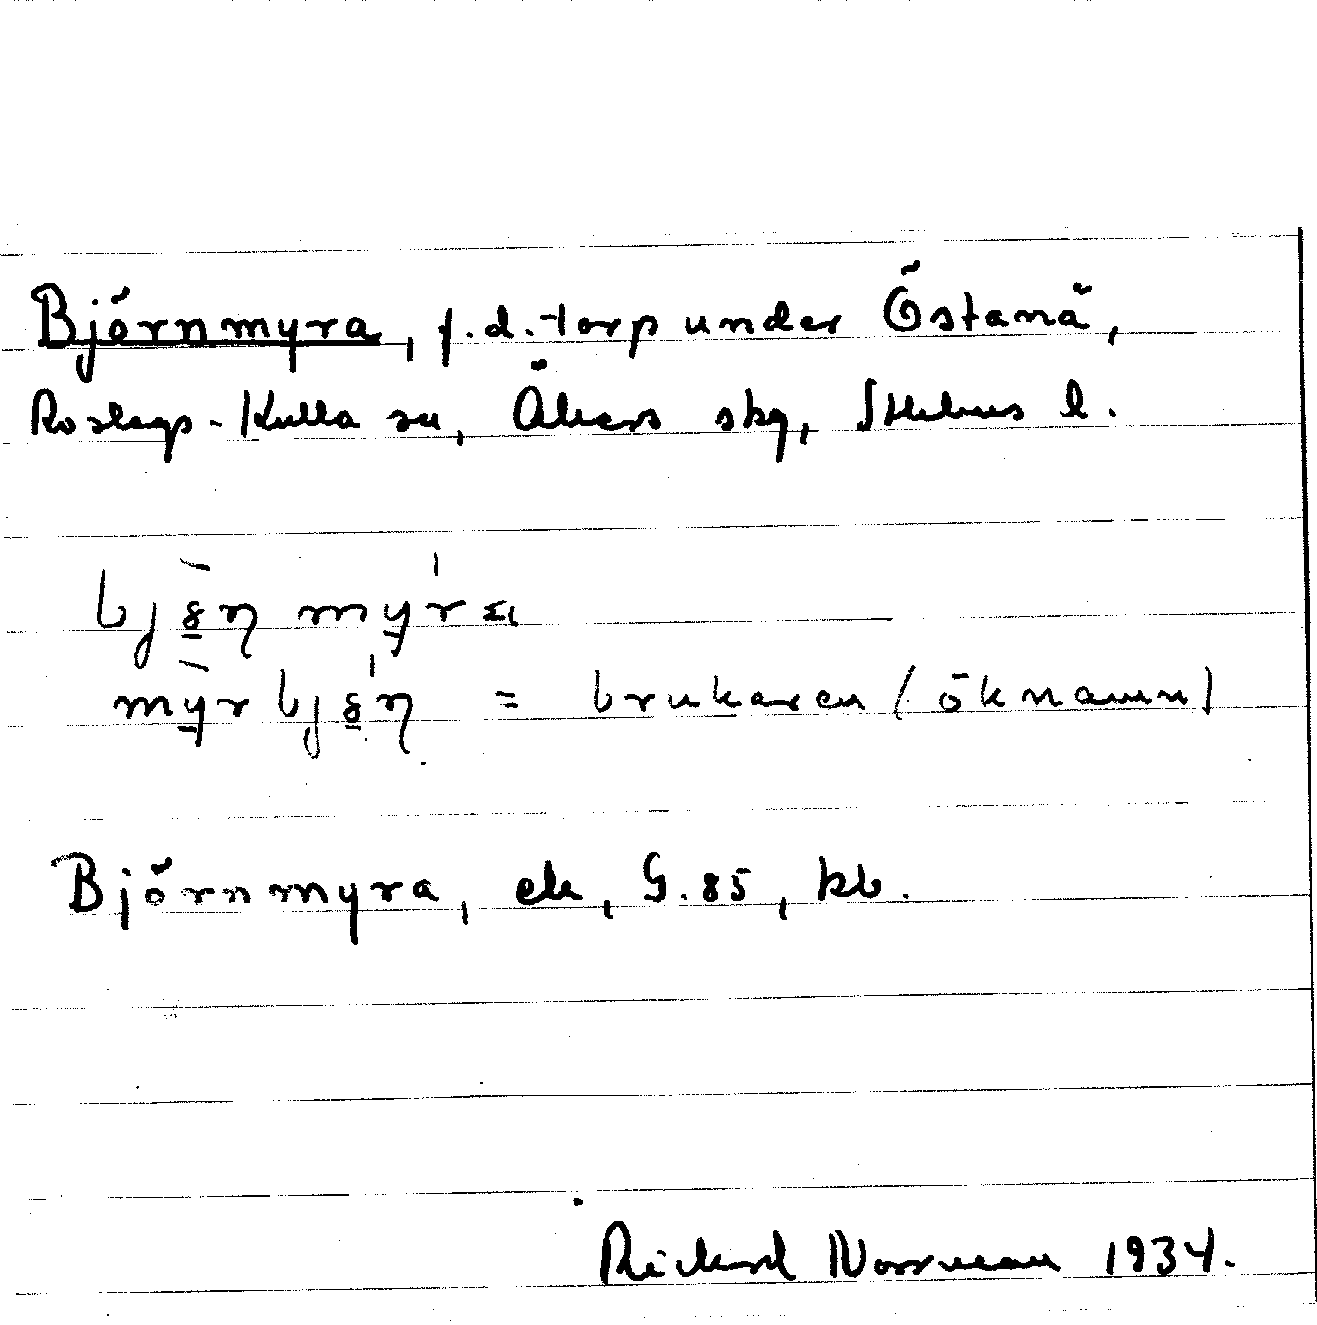 Björnmyra, f.d. torp under Östanå,
Roslags-Kulla sn, Åkers skg, Sthlms l.
bjö̱ŋ my̱ra
my̱rbjö̱ŋ = brukaren (öknamn)
Björnmyra, ek, G.85, kb.
Rickard Norrman 1934.